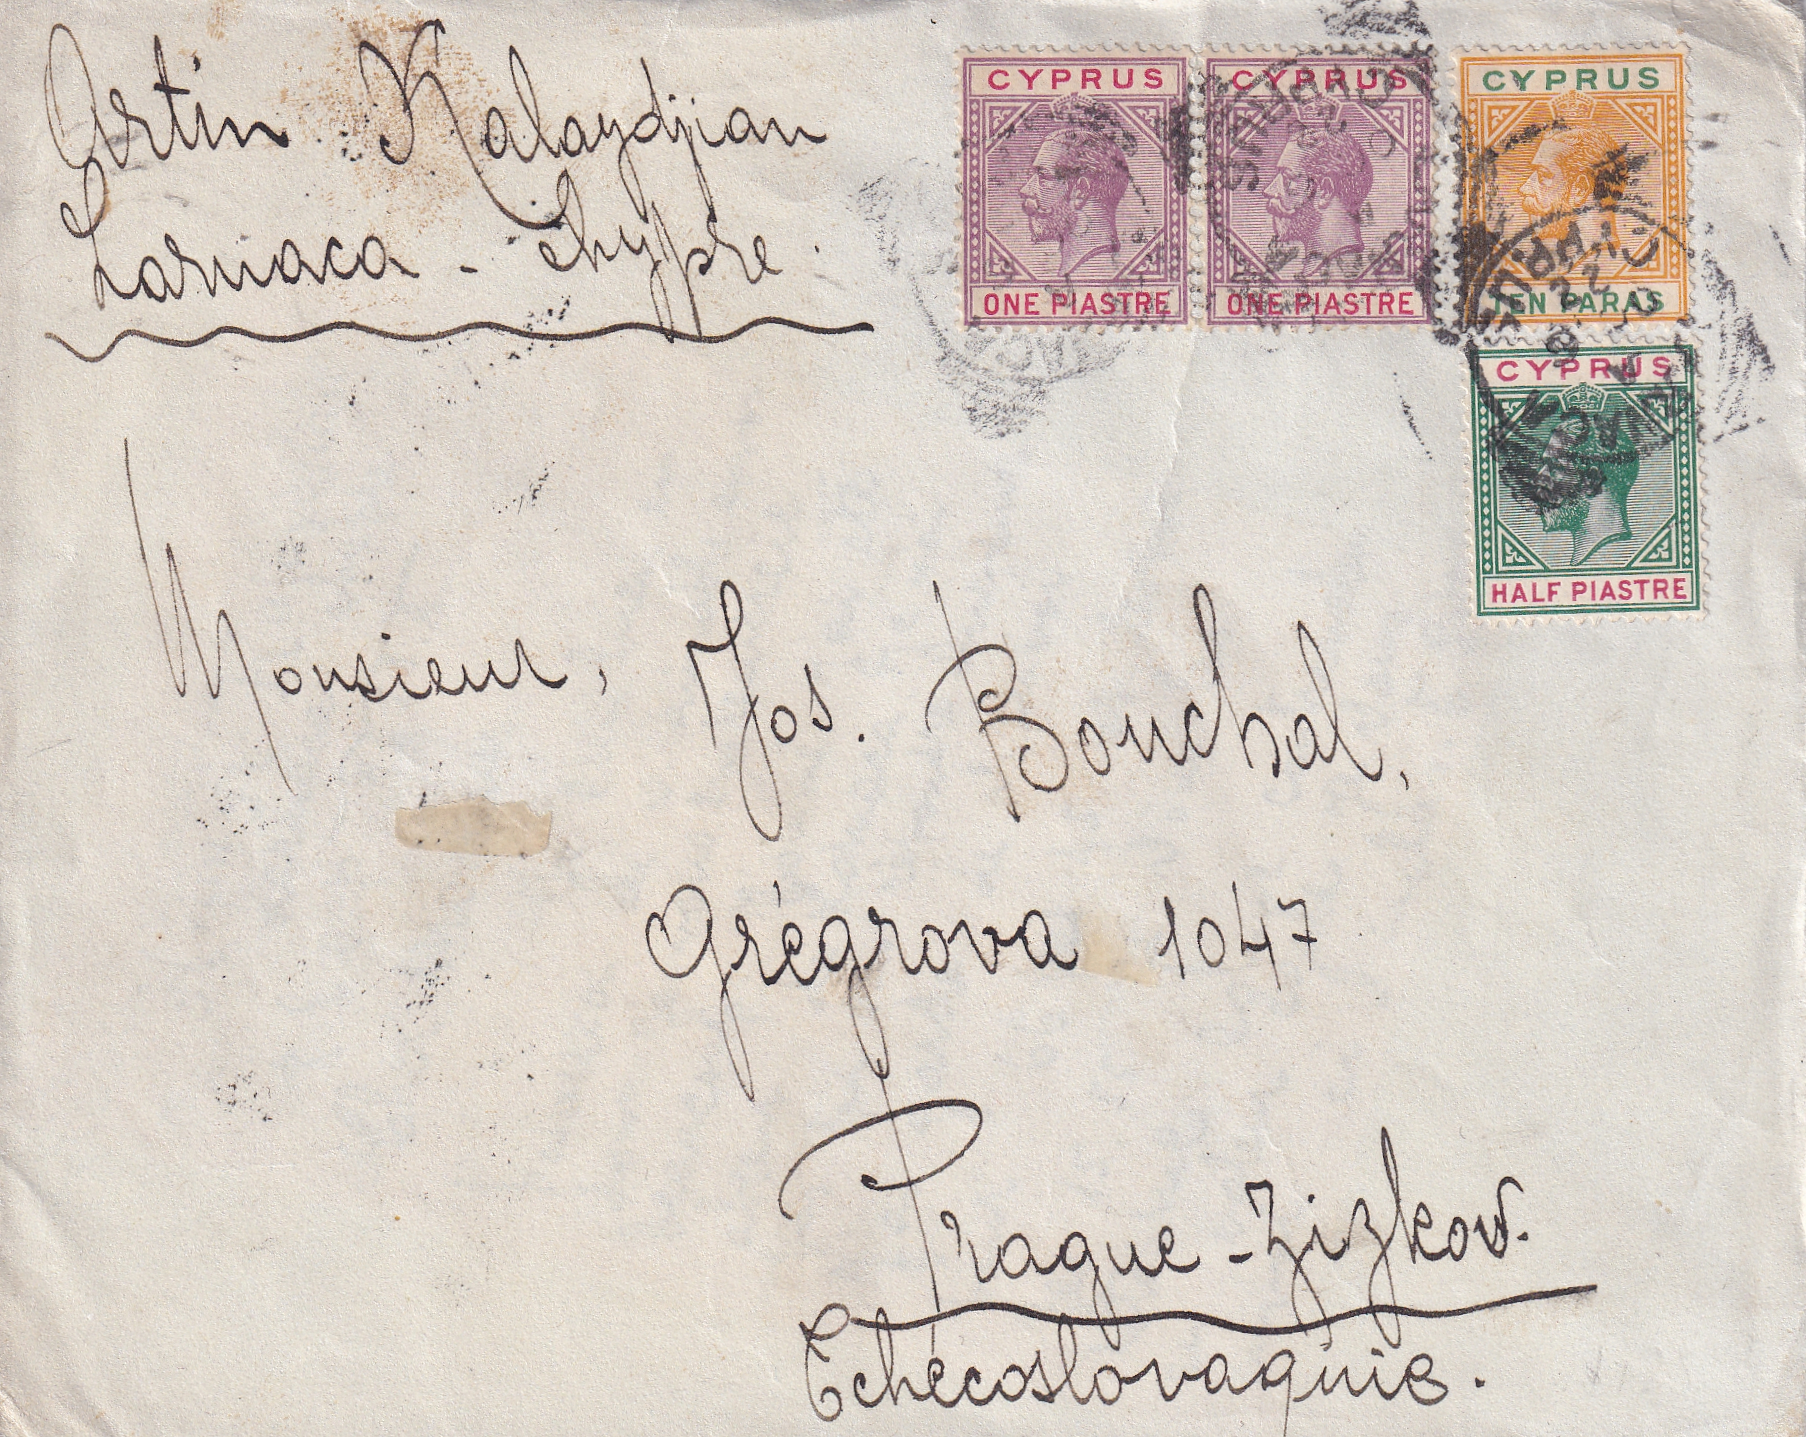 Artin Kalaydjian
Larnaca - Chypre.
CYPRUS
ONE PIASTRE
CYPRUS
ONE PIASTRE
CYPRUS
TEN PARAS
CYPRUS
HALF PIASTRE
CYPRUS
CYPRUS
Monsieur, Jos. Bouchal,
Grégrova 1047
Prague - Zizkov.
Tchécoslovaquie.